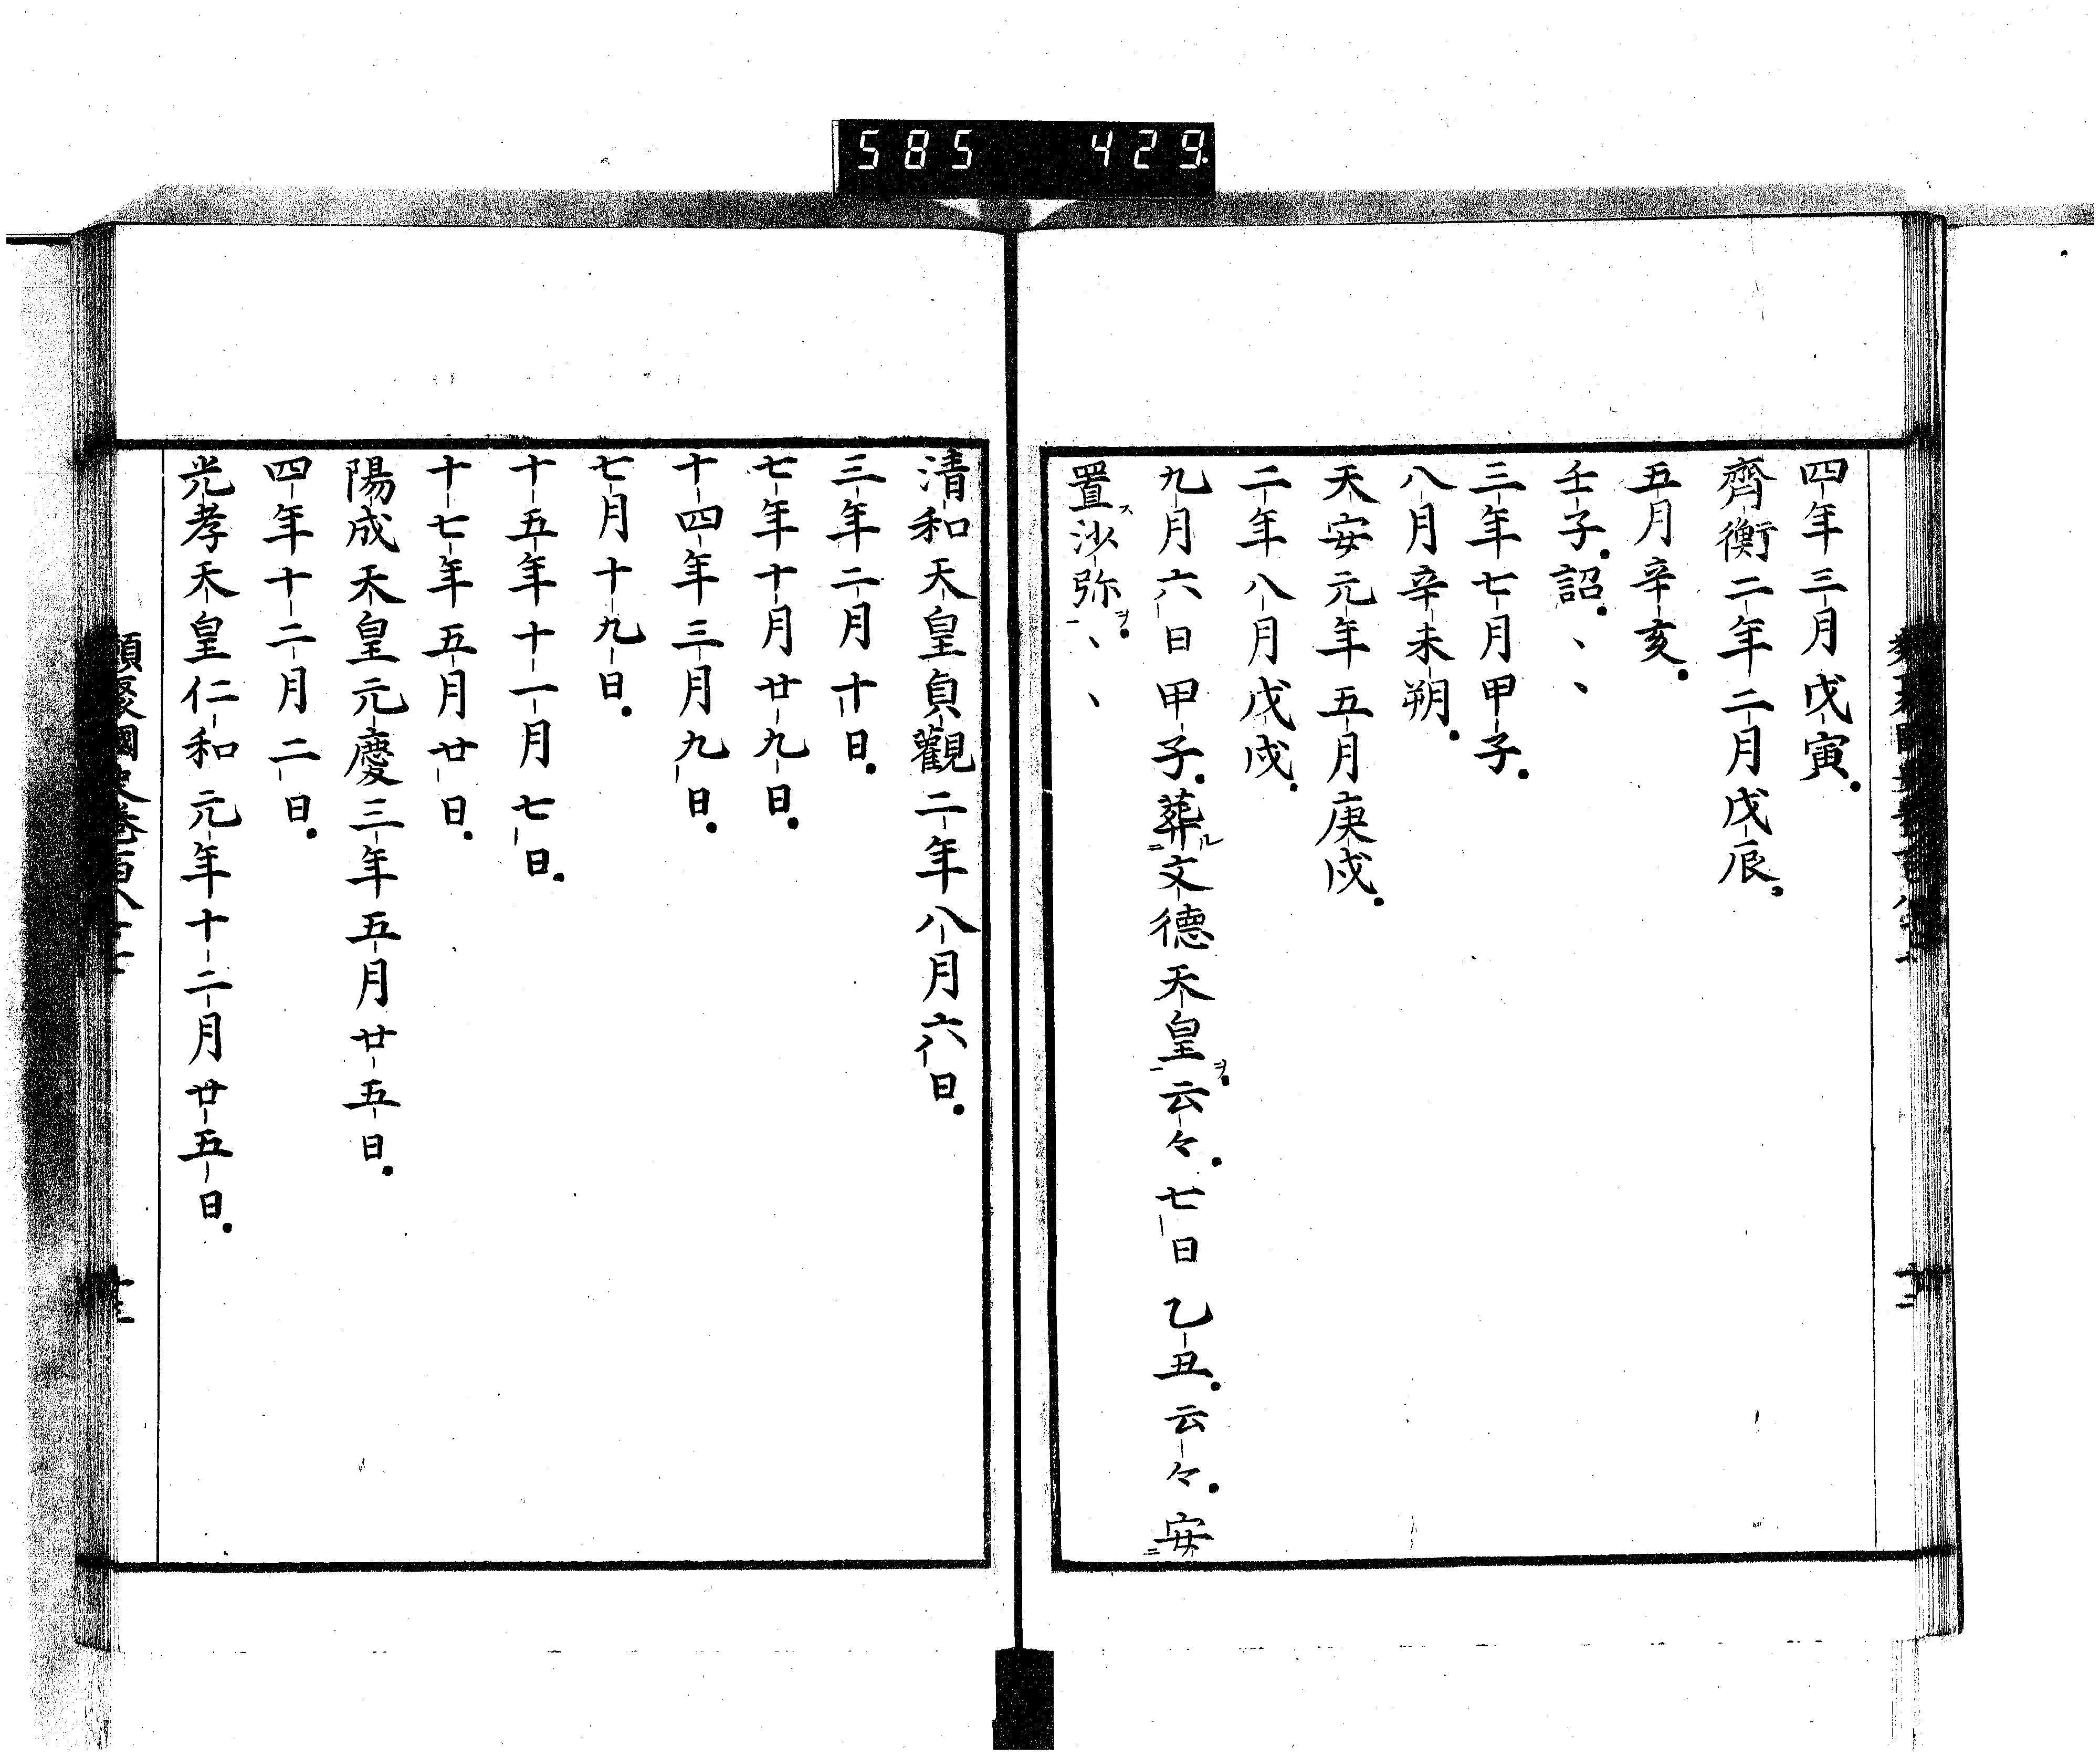 585 429
四年三月戊寅.
齊衡二年二月戊辰.
五月辛亥.
壬子.詔.、、
三年七月甲子.
八月辛未朔.
天安元年五月庚戌.
二年八月戊戌.
九月六日甲子.葬ル二文德天皇一ヲ.云々.七日乙丑.云々.安二
置ス沙弥一ヲ.、、
清和天皇貞觀二年八月六日.
三年二月十日.
七年十月廿九日.
十四年三月九日.
七月十九日.
十五年十一月七日.
十七年五月廿日.
陽成天皇元慶三年五月廿五日.
四年十二月二日.
光孝天皇仁和元年十二月廿五日.
類聚國史卷百八十